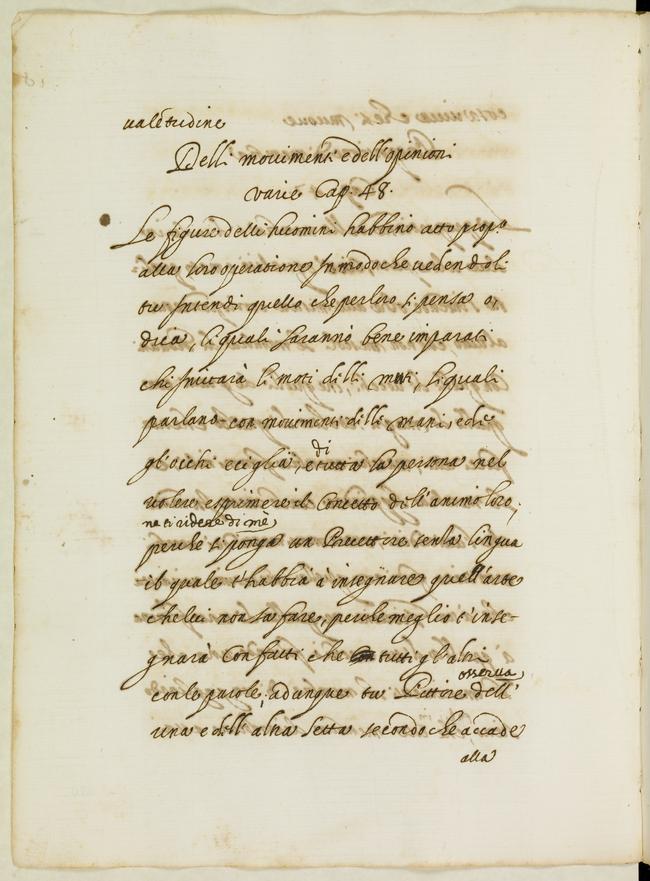 ualetudine
Delli mouimenti e dell'opinioni
varie Cap. 48.
Le figure delli huomini habbino atto propo
alla loro operatione In modo che uedendoli
tu Intendi quello che per loro si pensa o,
dica, li quali saranno bene imparati
chi Imitarà li moti delli muti, li quali
parlano con mouimenti delli mani, e de
gl'occhi e ciglia, e di tutta la persona nel
uolere esprimere il Concetto dell'animo loro,
ne ti ridere di mè,
perche ti ponga un Precettore senza lingua
il quale t'habbia à insegnare quell'arte
che lui non sa fare, perche meglio t'inse-
gnarà Con fatti che tutti gl'altri
con le parole, adunque tu Pittore osserua dell'
una e dell'altra setta secondo che accade
alla